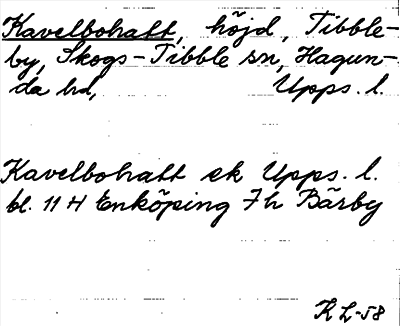 Kavelbohatt, höjd, Tibble-
by, Skogs-Tibble sn, Hagun-
da hd, Upps. l.
Kavelbohatt ek Upps. l.
bl. 11 H Enköping 7h Bärby
R L-58